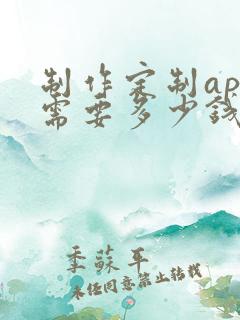 制作定制ap
需要多少钱
季苏平
未经同意禁止转载